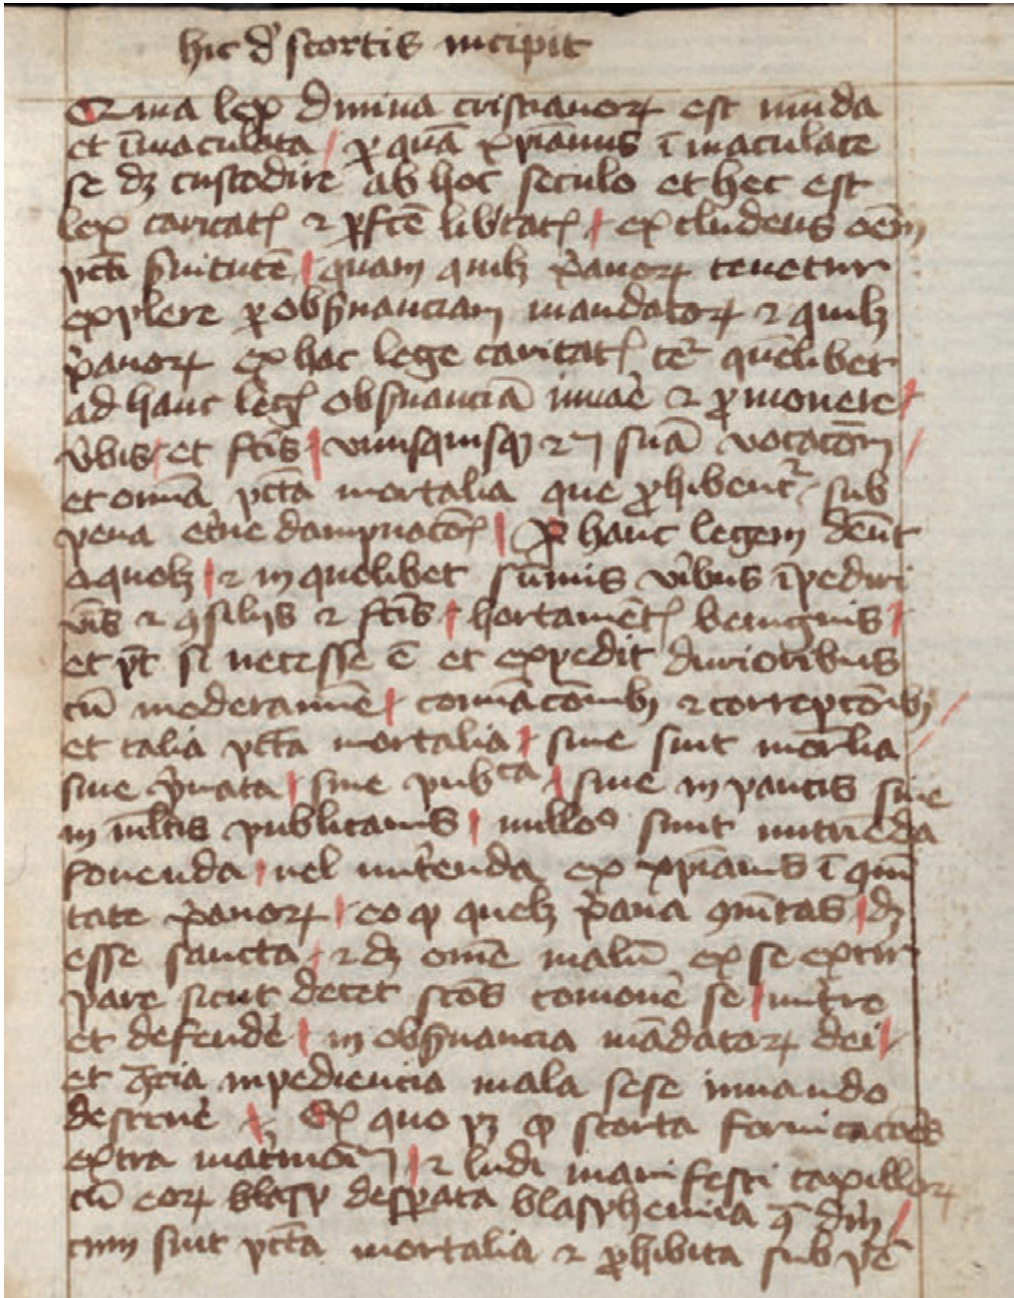 hic d' scortis incipit
Quia lex diuina cristianoꝝ est mūda
et īmaculata / ꝑ quā xp̄ianus īmaculate
se dꝫ custodire ab hoc seculo et hec est
lex caritatꝭ ⁊ ꝑfc̄e lib'tatꝭ / excludens oēm
pctī s'uitutē / quam quilꝫ xp̄anoꝝ tenetur
explere ꝑ obs'uanciam mandatoꝝ ⁊ quilꝫ
xp̄anoꝝ ex hac lege caritatꝭ quēlibet
ad hanc legꝭ obs'uanciā iuuar̄e ⁊ ꝓmouere /
v'bis / et fctīs / vnusquisqꝫ suā vocacōm /
et omīa pctā mortalia que ꝓhibent᷑ sub
pena et'ne dampnacōꝭ / Per hanc legem dēnt
a quolꝫ / ⁊ in quolibet sūmis virībus īpediri
⁊ ꝯsilijs ⁊ fctīs / hortamētꝭ benignis /
et si necesse ē et expedit durioribus
cū moderamīe / cominacōnibꝫ ⁊ correpcōnibꝫ /
et talia pctā mortalia / siue sint /
siue p'uata / siue pub^ca / siue in paucis siue
in m̄ltis publicanis / nullo^o sunt nutriēda
fouenda / uel mittenda ex xp̄ianis ī quīn
tate xp̄anoꝝ / eo qꝫ quelꝫ xp̄ana ꝯm̄itas / dꝫ
esse sancta / ⁊ dꝫ omē malū ex se extir
pare sicut decet sc̄os comouē se /
et defende' / in obs'uancia mādatoꝝ dei /
et ꝯt'ria inpediencia mala sese iuuando
destrue' / Ex quo pꝫ ꝙ scorta fornicacōes
extra mat'moīm / ⁊ ludi manifesti taxilloꝝ
cū eoꝝ blasp desp̄ata blasphemia dm̄ /
cum sint pctā mortalia ⁊ ꝓhibita sub pē